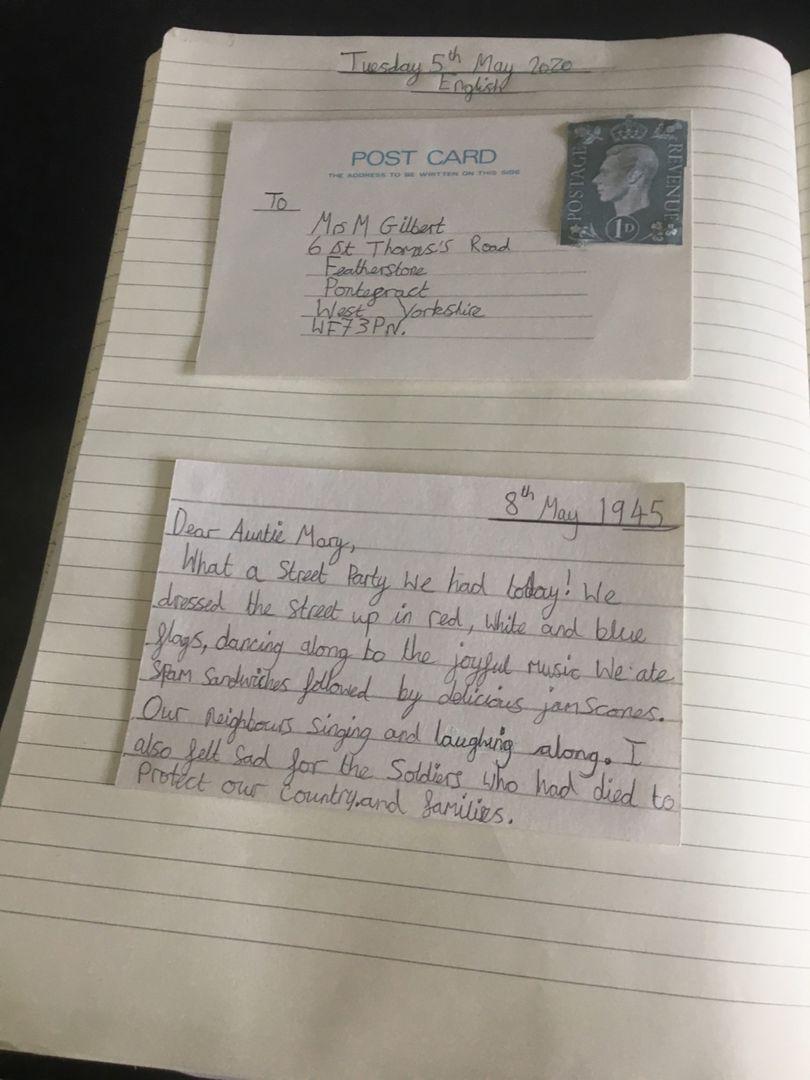 Tuesday 5th May 2020
English
POST CARD
THE ADDRESS TO BE WRITTEN ON THIS SIDE
POSTAGE REVENUE
1D
To
Mrs M Gilbert
6 St Thomas's Road
Featherstone
Pontegract
West Yorkshire
WF73PN.
8th May 1945
Dear Auntie Mary,
What a Street Party We had today! We
dressed the street up in red, white and blue
flags, dancing along to the joyful music We ate
Spam Sandwiches followed by delicious jam Scones.
Our neighbours singing and laughing along. I
also felt Sad for the Soldiers who had died to
Protect our Country.and families.